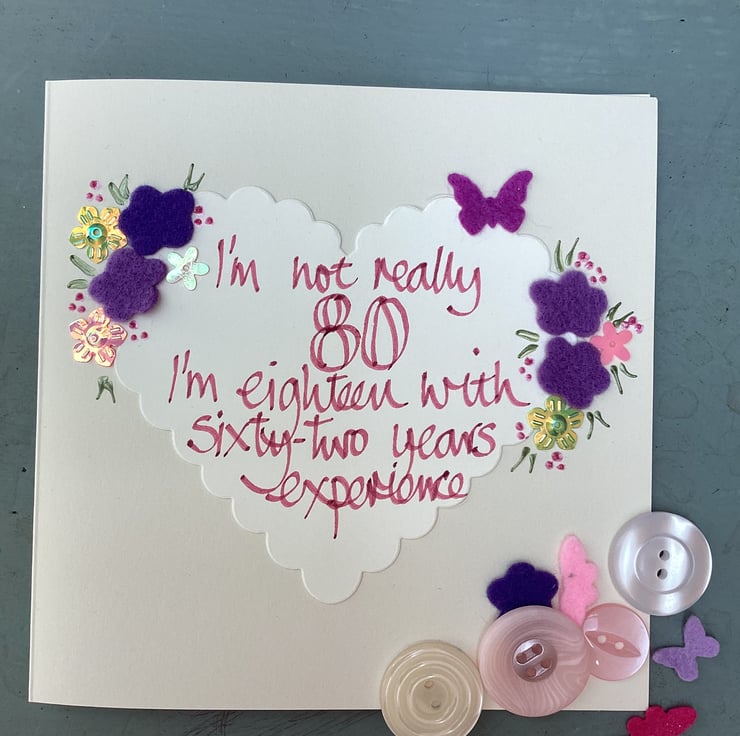 I'm not really
80
I'm eighteen with
sixty-two years
experience